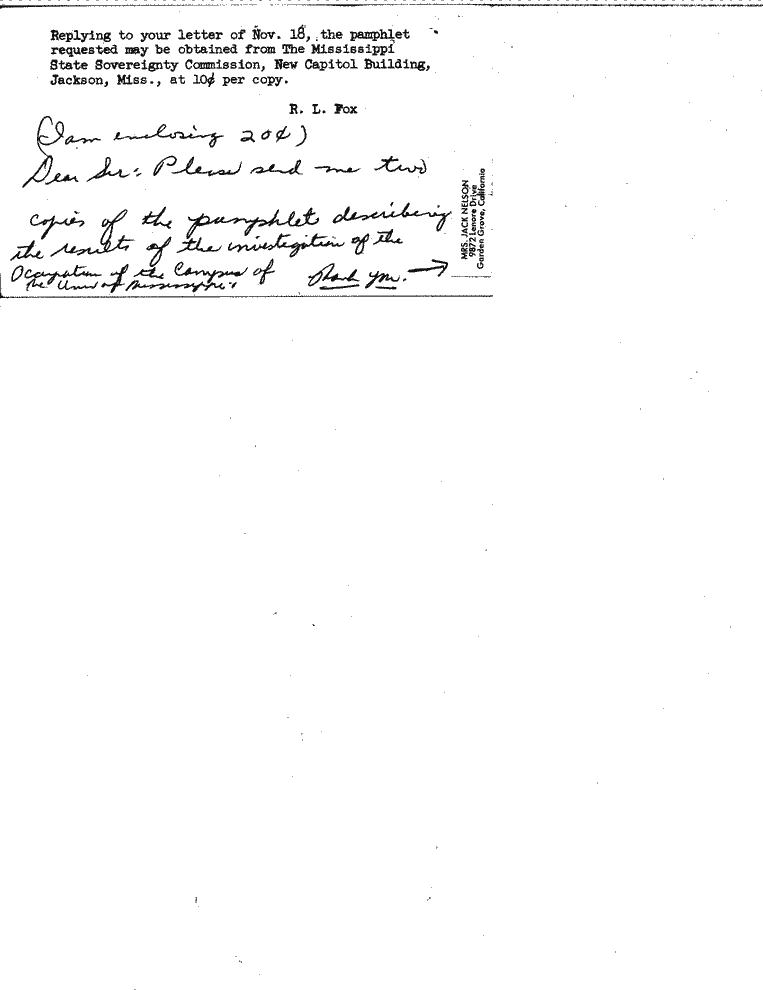 Replying to your letter of Nov. 18, the pamphlet
requested may be obtained from The Mississippi
State Sovereignty Commission, New Capitol Building,
Jackson, Miss., at 10¢ per copy.
R. L. Fox
(I am enclosing 20¢)
Dear Sir: Please send me two
copies of the pamphlet describing
the results of the investigation of the
Occupation of the Campus of
the Univ of Mississippi.
Thank you. →
MRS. JACK NELSON
9872 Lenore Drive
Garden Grove, California